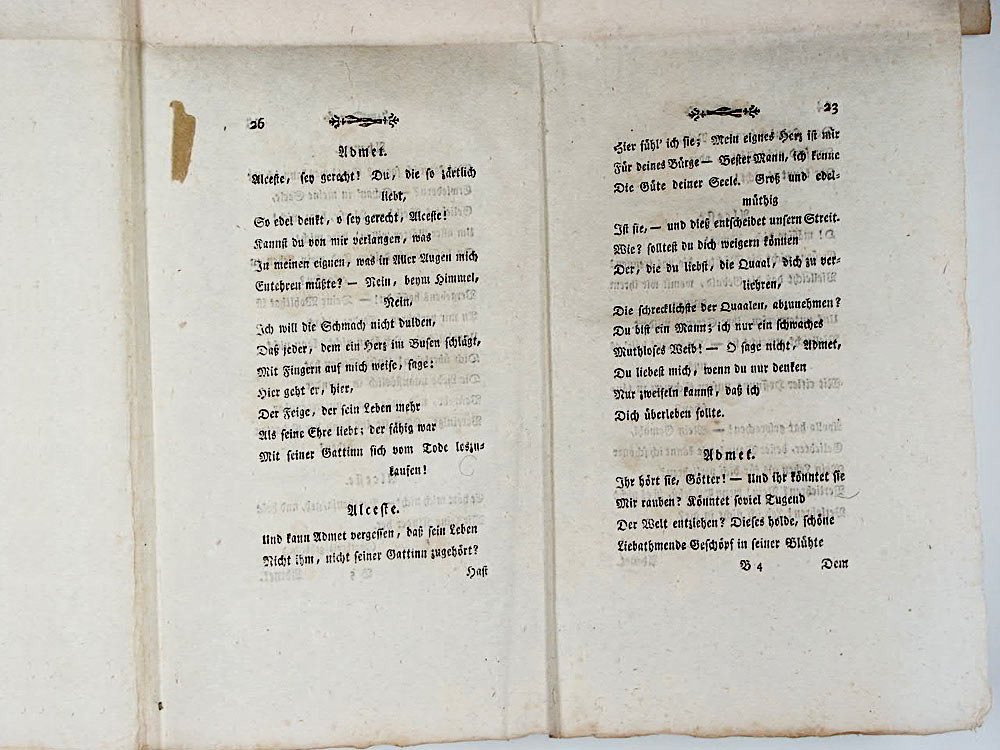 26
Admet.
Alceste, sey gerecht! Du, die so zärtlich
liebt,
So edel denkt, o sey gerecht, Alceste!
Kannst du von mir verlangen, was
In meinen eignen, was in Aller Augen mich
Entehren müßte? — Nein, beym Himmel,
Nein,
Ich will die Schmach nicht dulden,
Daß jeder, dem ein Herz im Busen schlägt,
Mit Fingern auf mich weise, sage:
Hier geht er, hier,
Der Feige, der sein Leben mehr
Als seine Ehre liebt; der fähig war
Mit seiner Gattinn sich vom Tode loszu-
kaufen!
Alceste.
Und kann Admet vergessen, daß sein Leben
Nicht ihm, nicht seiner Gattinn zugehört?
Hast
23
Hier fühl' ich sie; Mein eignes Herz ist mir
Für deines Bürge — Bester Mann, ich kenne
Die Güte deiner Seele. Groß und edel-
müthig
Ist sie, — und dieß entscheidet unsern Streit.
Wie? solltest du dich weigern können
Der, die du liebst, die Quaal, dich zu ver-
liehren,
Die schrecklichste der Quaalen, abzunehmen?
Du bist ein Mann; ich nur ein schwaches
Muthloses Weib! — O sage nicht, Admet,
Du liebest mich, wenn du nur denken
Nur zweifeln kannst, daß ich
Dich überleben sollte.
Admet.
Ihr hört sie, Götter! — Und ihr könntet sie
Mir rauben? Könntet soviel Tugend
Der Welt entziehen? Dieses holde, schöne
Liebathmende Geschöpf in seiner Blühte
B 4 Dem